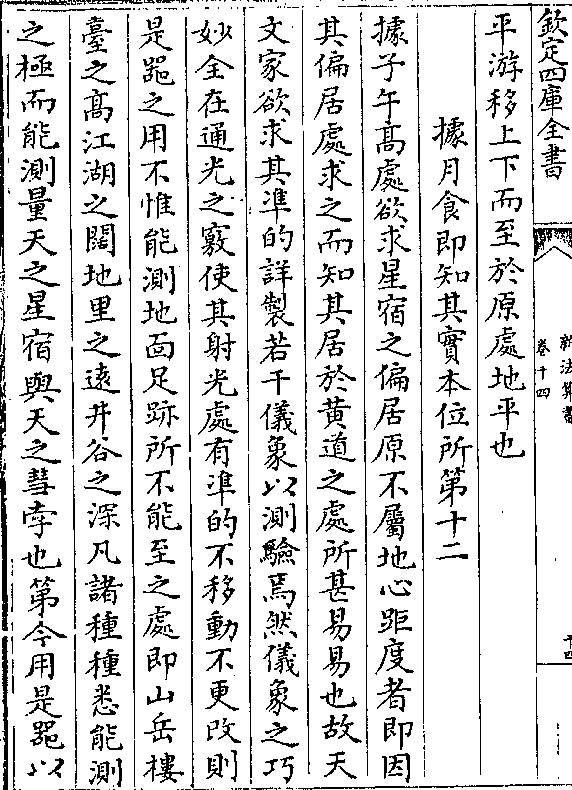 欽定四庫全書
新法算書
卷十四
十四
平游移上下而至於原處地平也
據月食即知其實本位所第十二
據子午髙處欲求星宿之偏居原不屬地心距度者即因
其偏居處求之而知其居於黄道之處所甚易易也故天
文家欲求其凖的詳製若干儀象以測驗焉然儀象之巧
妙全在通光之竅使其射光處有凖的不移動不更改則
是器之用不惟能測地面足跡所不能至之處即山岳樓
臺之髙江湖之闊地里之逺井谷之深凡諸種種悉能測
之極而能測量天之星宿與天之彗孛也第今用是器以